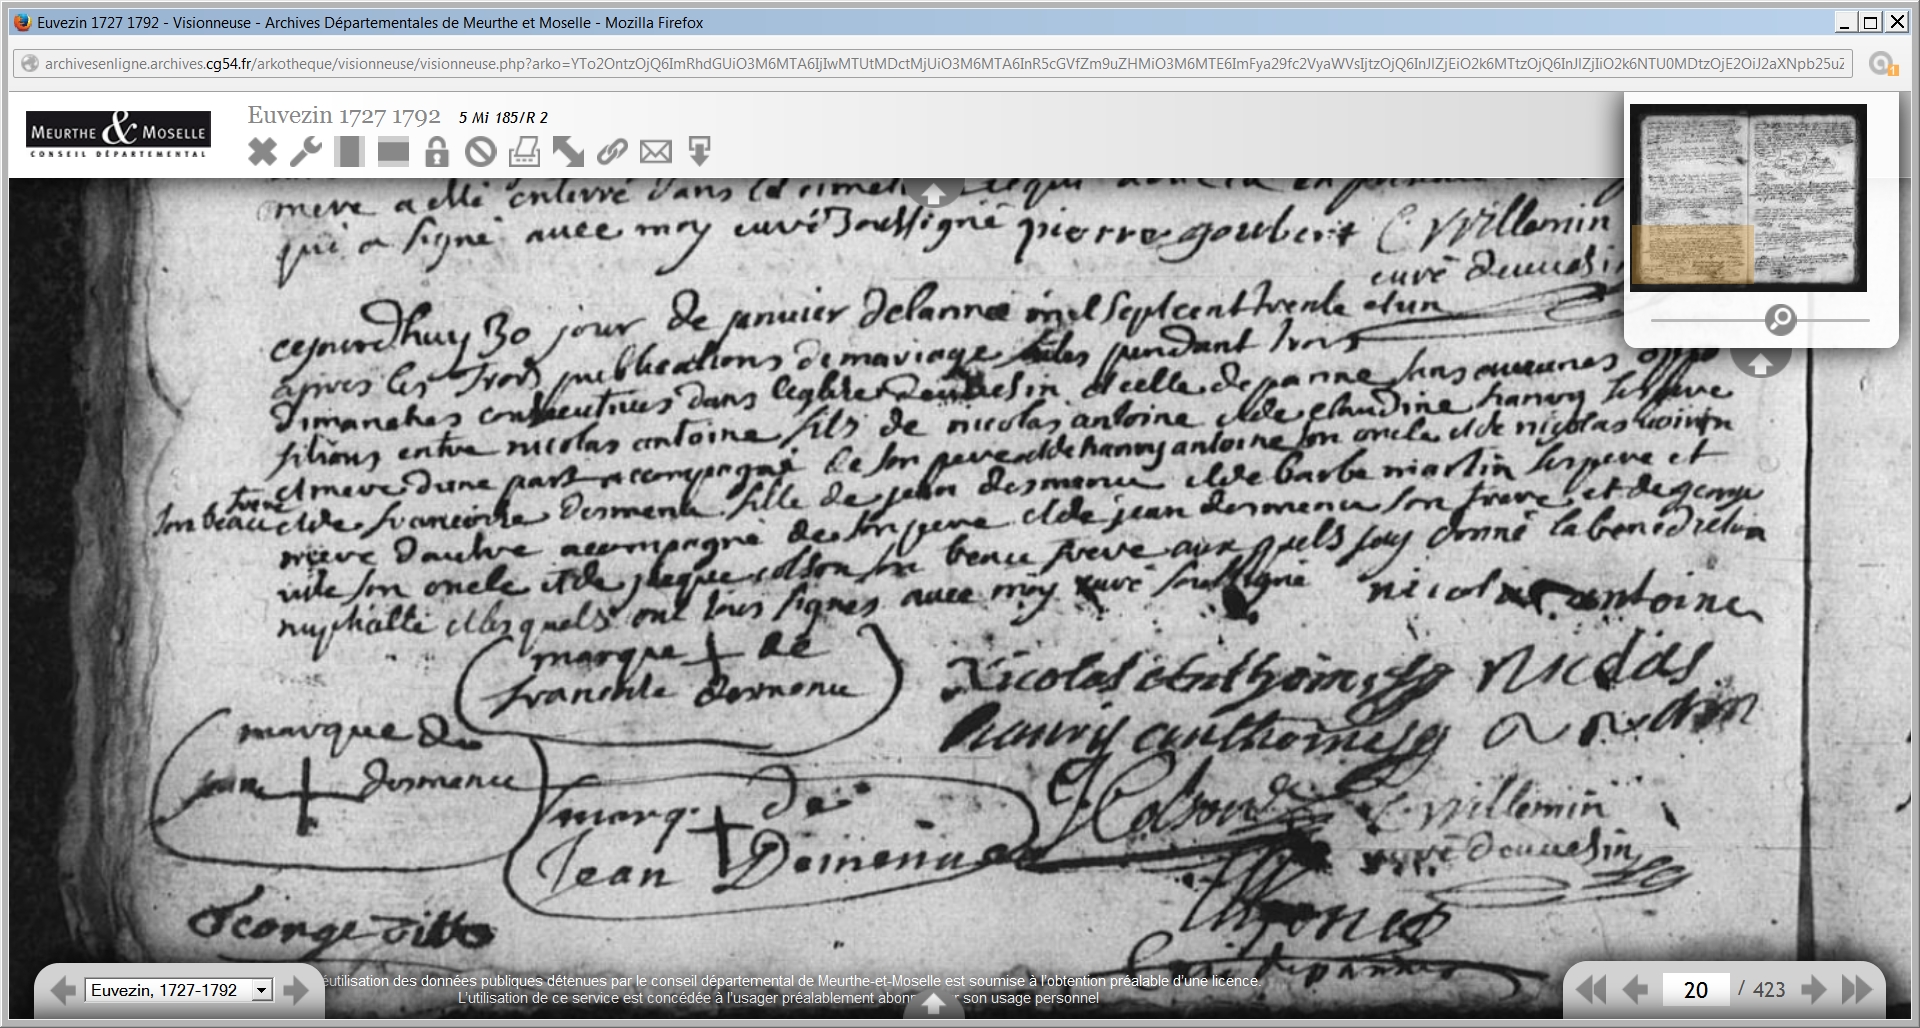 Euvezin 1727 1792 - Visionneuse - Archives Départementales de Meurthe et Moselle - Mozilla Firefox
archivesenligne.archives.cg54.fr/arkotheque/visionneuse/visionneuse.php?arko=
MEURTHE & MOSELLE
CONSEIL DÉPARTEMENTAL
Euvezin 1727 1792 5 Mi 185/R 2
mere a esté enterré dans le
qui a signé avec moy curé soussigné pierre goubert C Villemin
curé deuuesin
cejourdhuy 30 jour de januier delanné mil sept cent trente et un
apres les trois publications de mariage faites pendant trois
dimanches consecutives dans leglise deuuesin et celle de panne sans aucunes oppo
sitions entre nicolas antoine fils de nicolas antoine et de claudine hanry ses pere
et mere dune part acompagné de son pere et de hanry antoine son oncle et de nicolas
son beau frere et de francoise desmenu fille de jean desmenu et de barbe martin ses pere et
mere dautre acompagné de son pere et de jean desmenu son frere et de george
vite son oncle et de jacque colson son beau frere aux quels jay donné la benediction
nuptialle et lesquels ont tous signes avec moy curé soussigné nicolas antoine
marque de
francoise desmenu
Nicolas anthoine Nicolas
hanry anthoine
marque de
jean desmenu
marq. de
Jean Demenu
Colson
C Villemin
curé deuuesin
George vitte
Euvezin, 1727-1792
éutilisation des données publiques détenues par le conseil départemental de Meurthe-et-Moselle est soumise à l'obtention préalable d'une licence.
L'utilisation de ce service est concédée à l'usager préalablement abonn r son usage personnel
20 / 423